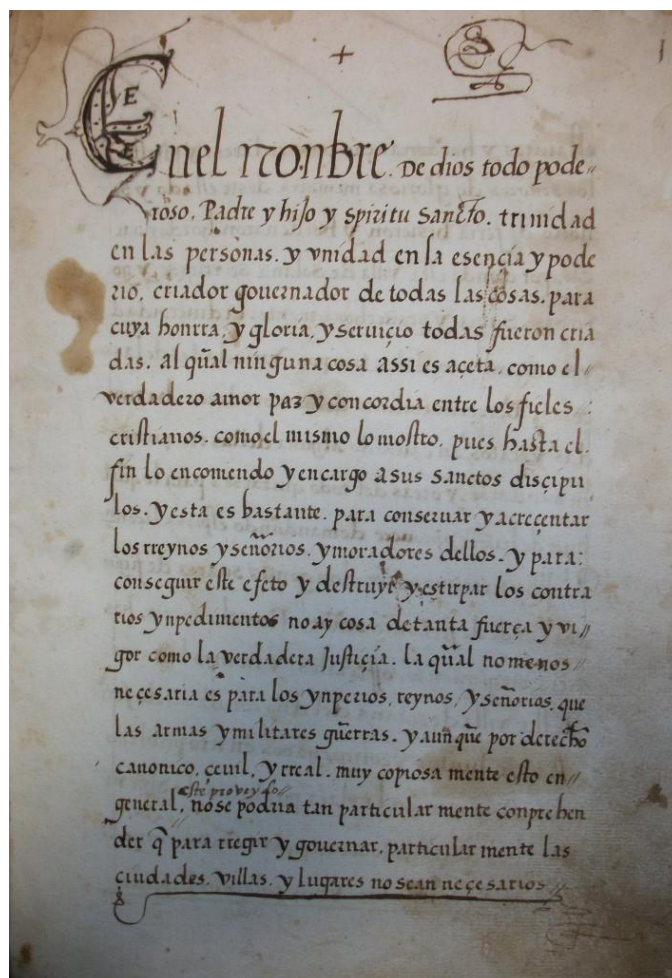 En el nonbre. De dios todo pode
rioso. Padre y hijo y spiritu sancto. trinidad
en las personas. y vnidad en la esençia y pode
rio, criador governador de todas las cosas. para
cuya honrra, y gloria, y serviçio todas fueron cria
das. al qual ninguna cosa assi es açeta, como el
verdadero amor paz y concordia entre los fieles
cristianos. como el mismo lo mostro. pues hasta el.
fin lo encomendo y encargo a sus sanctos disçipu
los. y esta es bastante. para conseruar y acreçentar
los rreynos y señorios. y moradores dellos. y para:
conseguir este efeto y destruyr y estirpar los contra
rios ynpedimentos no ay cosa de tanta fuerça y vi
gor como la verdadera Justiçia. la qual no menos
neçesaria es para los ynperios, reynos, y señorios, que
las armas y militares guerras. y aunque por derecho
canonico, çevil, y rreal. muy copiosa mente esto en
este proveydo
general, no se podria tan particular mente conprehen
der q̃ para rregir y governar, particular mente las
çiudades, villas, y lugares no sean neçesarios